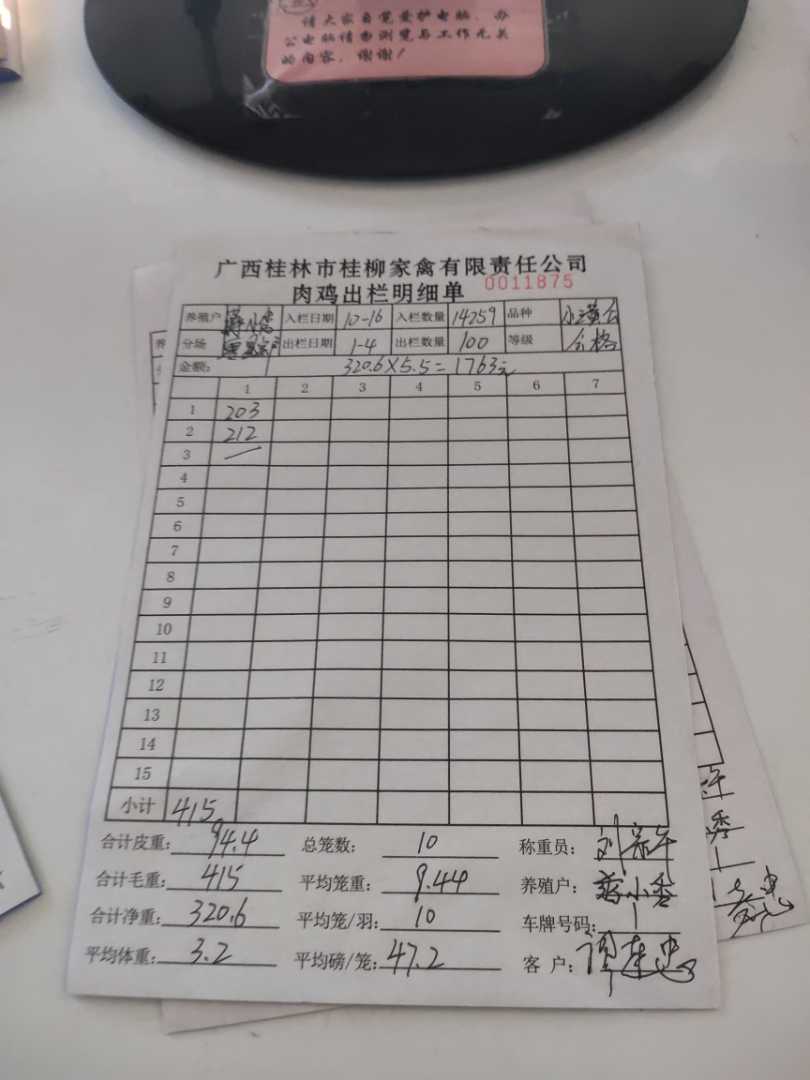 请大家自觉爱护电脑，办
公电脑请勿浏览与工作无关
的内容，谢谢！
广西桂林市桂柳家禽有限责任公司
肉鸡出栏明细单 0011875
养殖户 入栏日期 10-16 入栏数量 14259 品种
分场 出栏日期 1-4 出栏数量 100 等级 合格
金额： 320.6×5.5=1763元
1 2 3 4 5 6 7
1 203
2 212
3 —
4
5
6
7
8
9
10
11
12
13
14
15
小计 415
合计皮重： 94.4 总笼数： 10 称重员：
合计毛重： 415 平均笼重： 9.44 养殖户： 小香
合计净重： 320.6 平均笼/羽： 10 车牌号码：
平均体重： 3.2 平均磅/笼： 47.2 客 户： 谭建忠